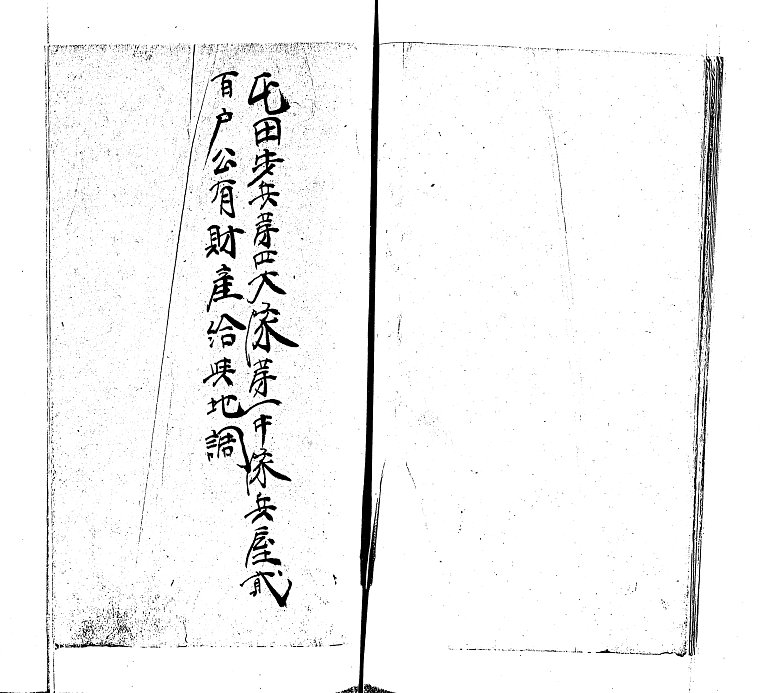 屯田歩兵第四大隊第一中隊兵屋貳
百戸公有財産給與地調